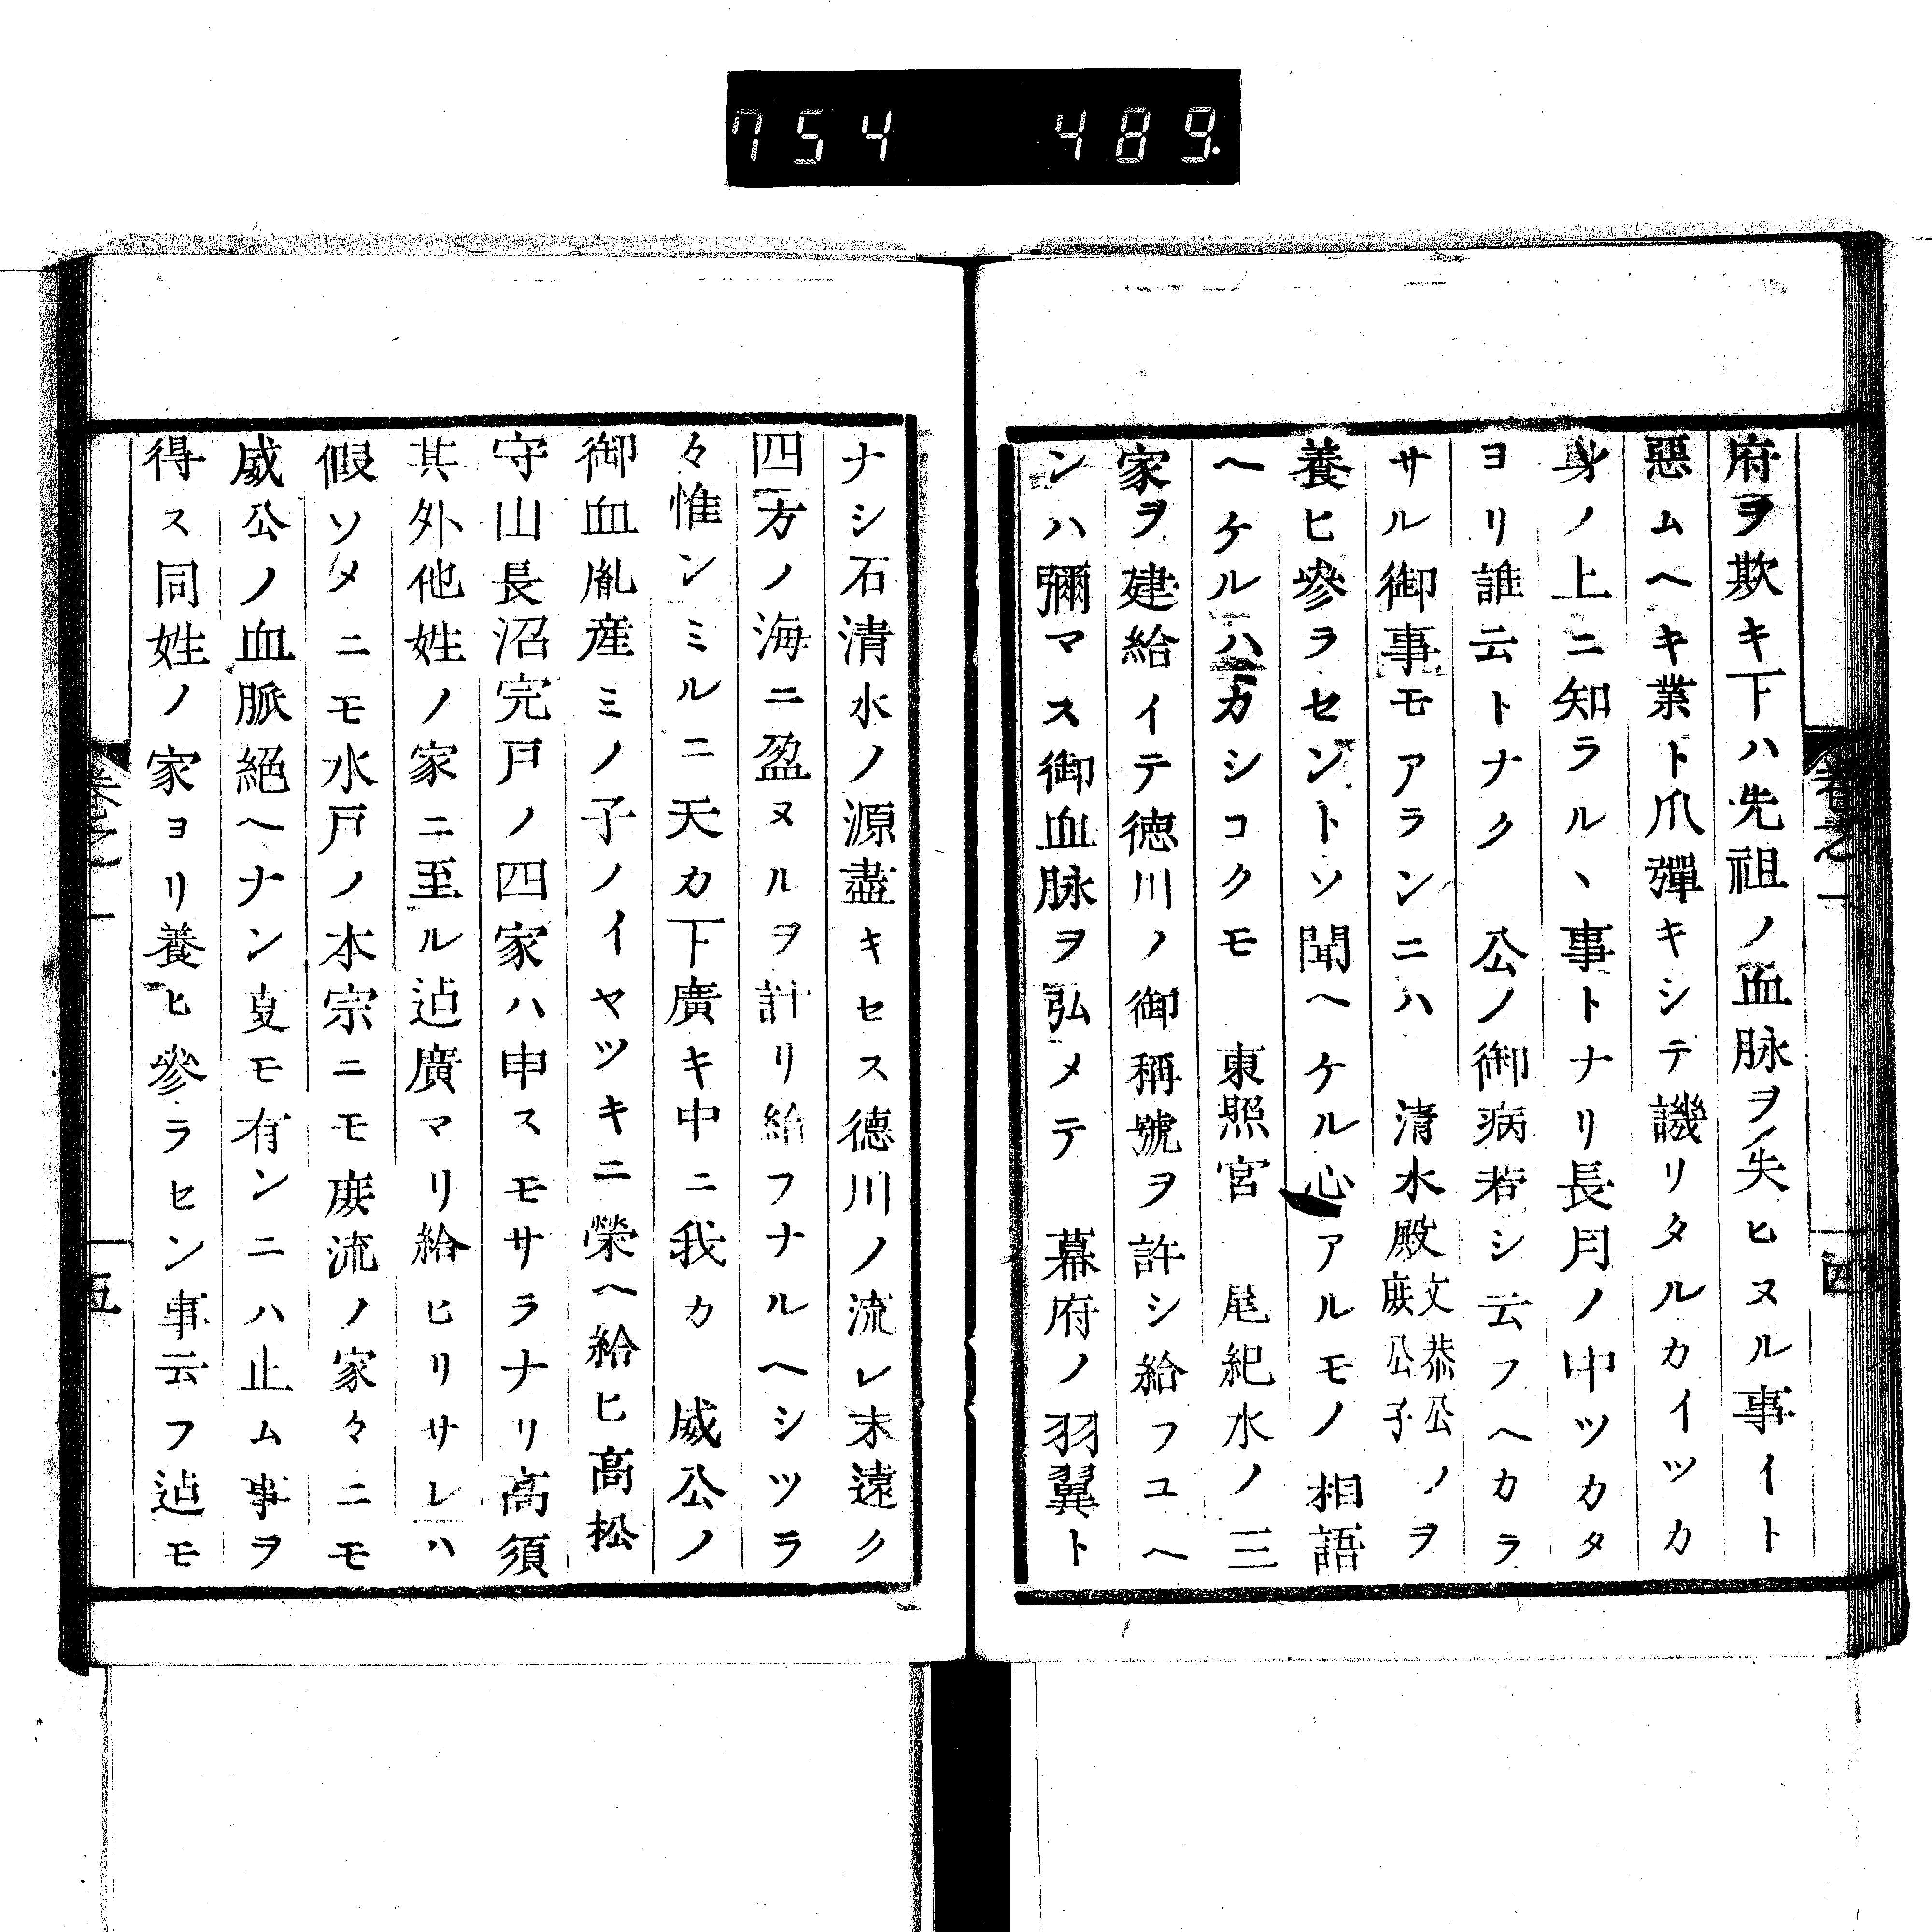 754 489.
卷之一 四
府ヲ欺キ下ハ先祖ノ血脉ヲ失ヒヌル事イト
惡ムヘキ業ト爪彈キシテ譏リタルカイツカ
身ノ上ニ知ラルヽ事トナリ長月ノ中ツカタ
ヨリ誰云トナク 公ノ御病若シ云フヘカラ
サル御事モアランニハ 清水殿文恭公ノ庻公子ヲ
養ヒ參ラセントソ聞ヘケル心アルモノ相語
ヘケルハカシコクモ 東照宮 尾紀水ノ三
家ヲ建給イテ徳川ノ御稱號ヲ許シ給フユヘ
ンハ彌マス御血脉ヲ弘メテ 幕府ノ羽翼ト
ナシ石清水ノ源盡キセス德川ノ流レ末遠ク
四方ノ海ニ盈ヌルヲ計リ給フナルヘシツラ
々惟ンミルニ天カ下廣キ中ニ我カ 威公ノ
御血胤産ミノ子ノイヤツキニ榮ヘ給ヒ高松
守山長沼完戸ノ四家ハ申スモサラナリ高須
其外他姓ノ家ニ至ル迠廣マリ給ヒリサレハ
假ソメニモ水戸ノ本宗ニモ庻流ノ家々ニモ
威公ノ血脈絕ヘナン叓モ有ンニハ止ム事ヲ
得ス同姓ノ家ヨリ養ヒ參ラセン事云フ迠モ
卷之一 五